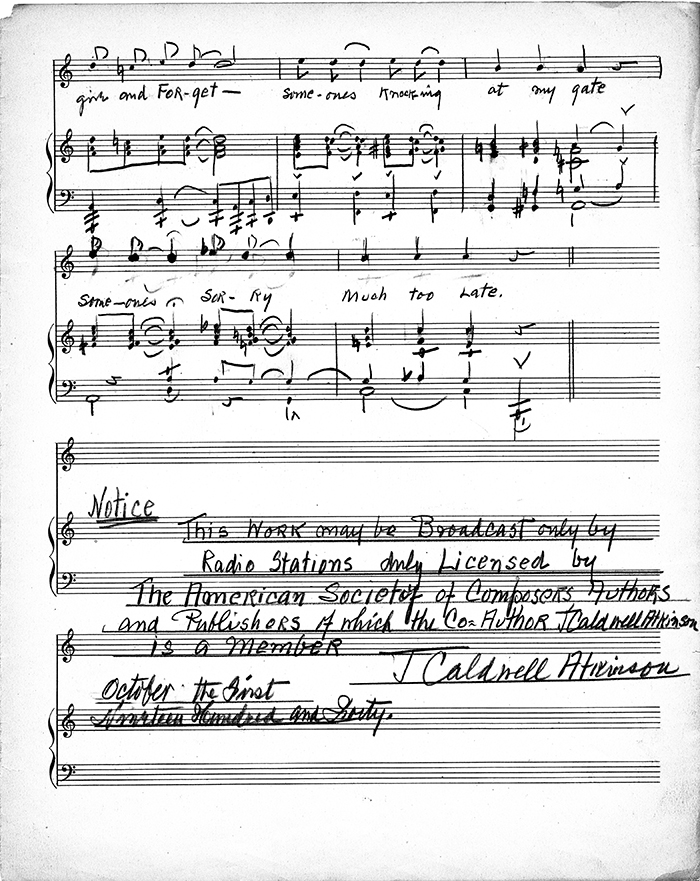 give and For-get—
Some-ones Knock-ing at my gate
Some-ones Sor-Ry Much too Late.
Notice
This Work may be Broadcast only by
Radio Stations duly Licensed by
The American Society of Composers Authors
and Publishers of which the Co=Author J Caldwell Atkinson
is a Member
J Caldwell Atkinson
October the First
Nineteen Hundred and Forty.